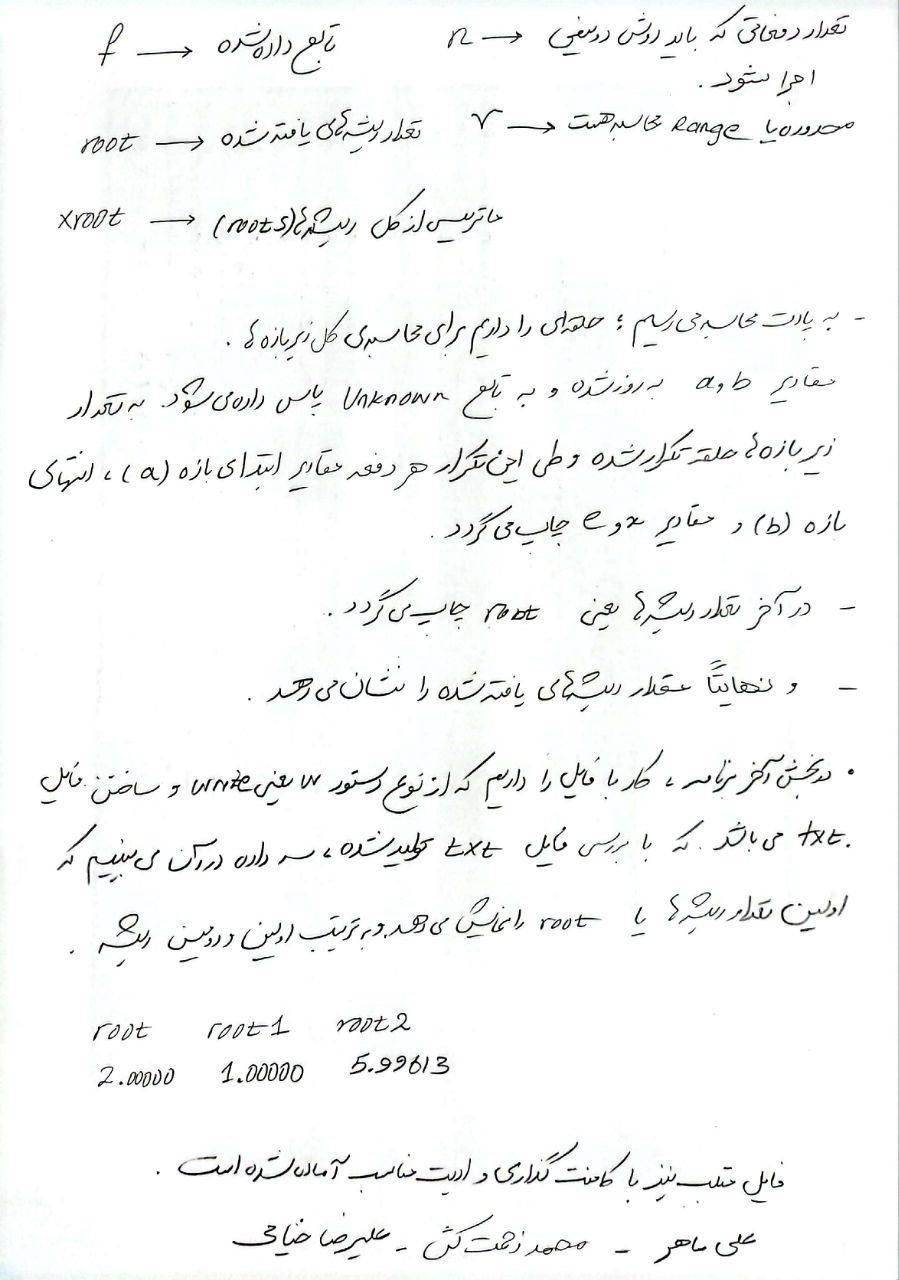 تعداد دفعاتی که باید روش دوبیفی ← n تابع داده شده ← f
اجرا شود.
محدوده یا Range محاسبه هست ← r تعداد ریشه‌های یافته شده ← root
ماتریس از کل ریشه‌ها (roots) ← xroot
- به پارت محاسبه می‌رسیم ؛ حلقه‌ای را داریم برای محاسبه‌ی کل زیربازه‌ها .
مقادیر a,b به روز شده و به تابع Unknown پاس داده می‌شود. به تعداد
زیر بازه‌ها حلقه تکرار شده و طی این تکرار هر دفعه مقادیر ابتدای بازه (a) ، انتهای
بازه (b) و مقادیر x و e چاپ می‌گردد .
- در آخر تعداد ریشه‌ها یعنی root چاپ می‌گردد .
- و نهایتاً مقدار ریشه‌های یافته شده را نشان می‌دهد .
• در بخش آخر برنامه ، کار با فایل را داریم که از نوع دستور w یعنی write و ساختن فایل
.txt می باشد. که با بررسی فایل txt تولید شده ، سه داده در آن می بینیم که
اولین تعداد ریشه‌ها یا root را نمایش می‌دهد و به ترتیب اولین و دومین ریشه .
root root1 root2
2.00000 1.00000 5.99613
فایل متلب نیز با کامنت گذاری و ادیت مناسب آماده شده است .
علی ماهر - محمد زحمت کش - علیرضا ضیامی